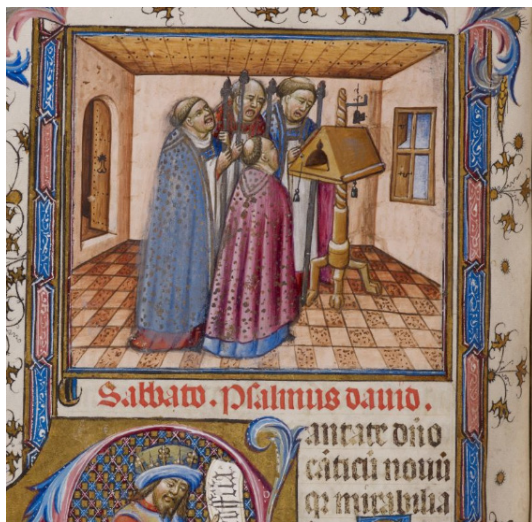 Sabbato. Psalmus dauid.
antate dño
cãticũ nouũ
q̃ mirabilia